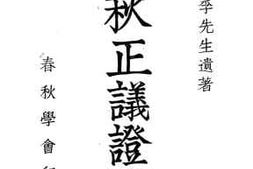 季先生遺著
秋正議證
春秋學會